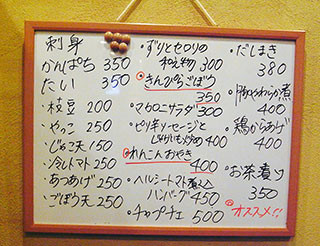 刺身
かんぱち 350
たい 350
・枝豆 200
・やっこ 250
・じゃこ天 150
・冷しトマト 250
・あつあげ 250
・ごぼう天 250
・ずりとセロリの
和え物 300
・きんぴらごぼう
350
・マカロニサラダ 300
・ピリ辛ソーセージと
じゃがいも炒め 400
・れんこんおやき
400
・ヘルシートマト煮込み
ハンバーグ 450
・チャプチェ 500
・だしまき
380
・豚やわらか煮
400
・鶏からあげ
400
・お茶漬け
350
オススメ!!